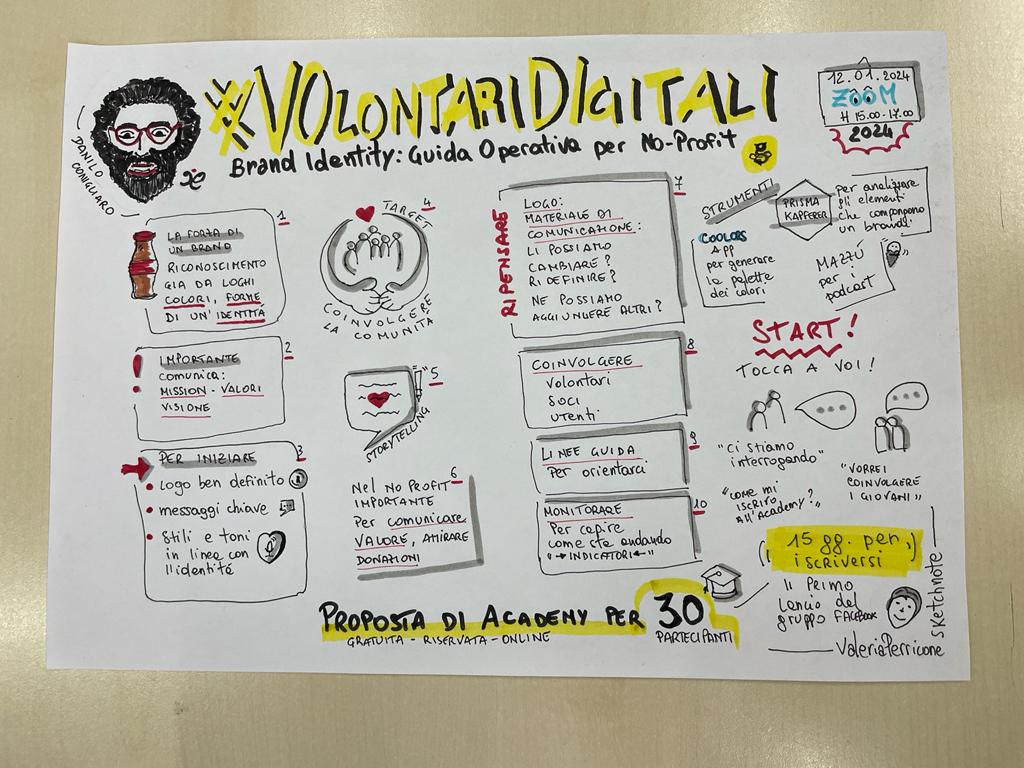 #VOLONTARIDIGITALI
Brand Identity: Guida Operativa per No-Profit
DANILO
CONIGLIARO
12.01.2024
ZOOM
H 15.00-17.00
2024
1
LA FORZA DI
UN BRAND
RICONOSCIMENTO
GIA DA LOGHI
COLORI, FORME
DI UN'IDENTITA
2
IMPORTANTE
comunica:
MISSION - VALORI
VISIONE
3
PER INIZIARE
Logo ben definito
messaggi chiave
Stili e toni
in linea con
l'identità
4
TARGET
COINVOLGERE
LA COMUNITA
5
STORYTELLING
6
Nel NO PROFIT
IMPORTANTE
Per comunicare
VALORE, AMIRARE
DONAZIONI
7
RIPENSARE
LOGO:
MATERIALE DI
COMUNICAZIONE:
LI POSSIAMO
CAMBIARE?
RIDEFINIRE?
NE POSSIAMO
AGGIUNGERE ALTRI?
8
COINVOLGERE
Volontari
SOCI
UTENTI
9
LINEE GUIDA
Per orientarci
10
MONITORARE
Per capire
come sta andando
"→INDICATORI←"
STRUMENTI
PRISMA
KAPFERER
per analizzare
gli elementi
che compongono
un brand
COOLORS
APP
per generare
la palette
dei colori
MAZZÚ
per i
podcast
START!
TOCCA A VOI!
...
...
"ci stiamo
interrogando"
"VORREI
COINVOLGERE
I GIOVANI"
"COME MI
ISCRIVO
All'ACADEMY?"
15 gg. per
iscriversi
Il Primo
Lancio del
gruppo FACEBOOK
PROPOSTA DI ACADEMY PER 30
GRATUITA - RISERVATA - ONLINE
PARTECIPANTI
ValeriaPerricone
sketchnote